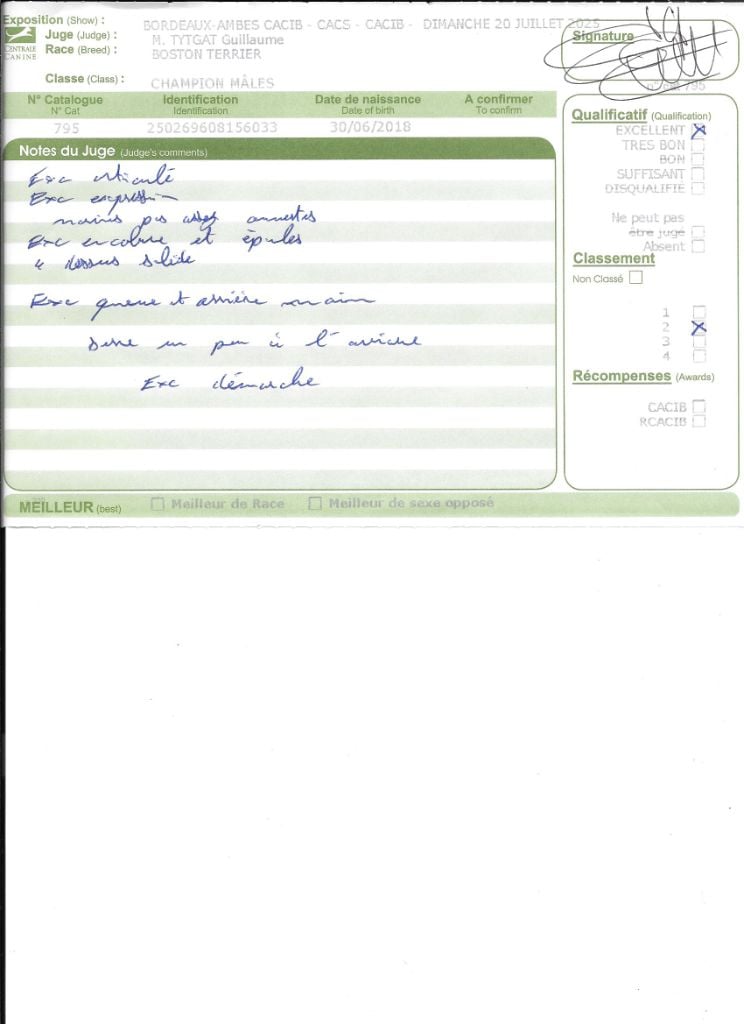 Exposition (Show) : BORDEAUX-AMBES CACIB - CACS - CACIB - DIMANCHE 20 JUILLET 2025
CENTRALE CANINE
Juge (Judge) : M. TYTGAT Guillaume
Race (Breed) : BOSTON TERRIER
Classe (Class) : CHAMPION MÂLES
Signature
n° cat 795
N° Catalogue Identification Date de naissance A confirmer
N° Cat Identification Date of birth To confirm
795 250269608156033 30/06/2018
Notes du Juge (Judge's comments)
Exc
Exc expression
moins pas assez
Exc encolure et épaules
dessus solide
Exc queue et arrière main
Serre un peu à l'arrière
Exc démarche
Qualificatif (Qualification)
EXCELLENT
TRES BON
BON
SUFFISANT
DISQUALIFIE
Ne peut pas
être jugé
Absent
Classement
Non Classé
1
2
3
4
Récompenses (Awards)
CACIB
RCACIB
MEILLEUR (best) Meilleur de Race Meilleur de sexe opposé